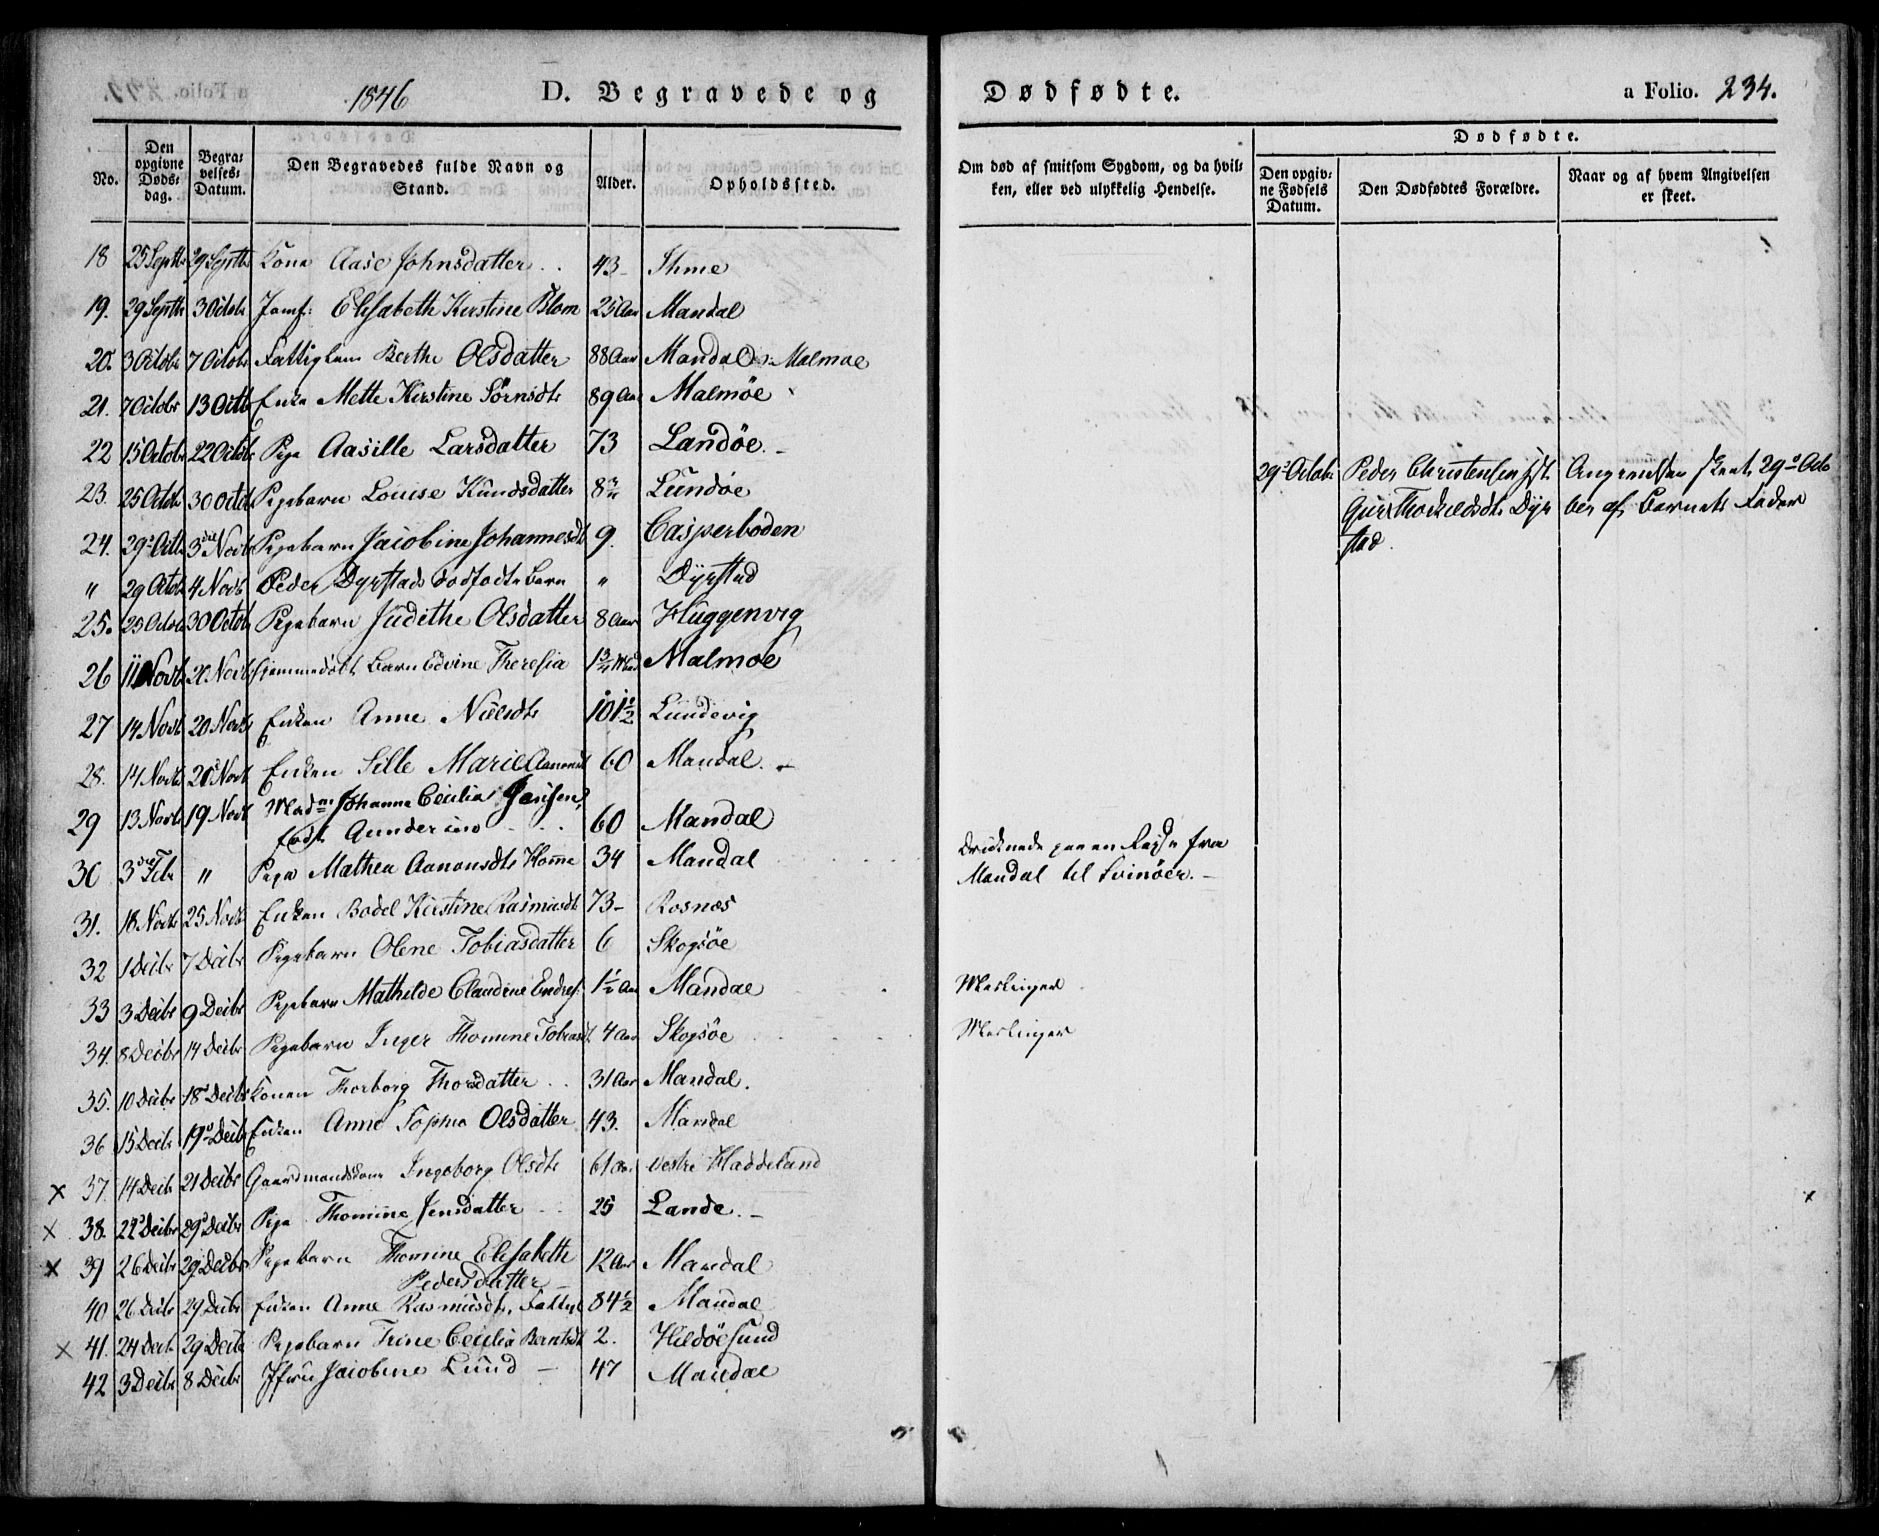 1846 D. Begravede og Dødfødte. a Folio. 234.
No. Den opgivne Døds-dag. Begra-velses-Datum. Den Begravedes fulde Navn og Stand. Alder. Opholdssted. Om død af smitsom Sygdom, og da hvil-ken, eller ved ulykkelig Hendelse. Dødfødte.
Den opgiv-ne Fødsels Datum. Den Dødfødtes Forældre. Naar og af hvem Angivelsen er skeet.
18 25 Septbr 29 Septbr Kone Aase Johnsdatter .. 43- Ihme
19. 29 Septbr 3 Octobr Jomf: Elisabeth Kirstine Blom 25 Aar Mandal
20. 3 Octobr 7 Octobr Fattiglem Berthe Olsdatter 88 Aar Mandal Malmøe
21. 7 Octobr 13 Octb Enke Mette Kirstine Sørnsdtr 89 Aar Malmöe
22 15 Octobr 22 Octobr Pige Aasille Larsdatter 73 Landøe. -
23. 25 Octobr 30 Octob Pigebarn Louise Knudsdatter 8 3/4 Lundøe
24. 29 Octb 3die Novb Pigebarn Jacobine Johannesdt 9. Casperboden
" 29 Octob 4 Novbr Peder Dyrstads dødfødte Barn " Dyrstad
29 Octobr Peder Christensen
Guri Thorkildsdtr Dyr
stad. Angivelsen skeet 29 Octo
ber af Barnets Fader
25. 25 Octobr 30 Octobr Pigebarn Judithe Olsdatter 8 Aar Kluggenvig
26 11 Novb 20 Novbr hjemmedøbt Barn Edvine Theresia 1 3/4 Malmøe
27 14 Novb 20 Novbr Enken Anne Nielsdtr 101 1/2 Lundevig
28. 14 Novbr 20 Novb Enken Sille Marie Aanensdt 60 Mandal. -
29 13 Novbr 19 Novb Madm Johanne Cecilia Jensen,
født Gundersen . . . 60 Mandal
30 3die Febr " Pige Mathea Aanonsdtr Homme 34 Mandal
Druknede paa en Rejse fra
Mandal til Svinöer. -
31. 18 Novbr 25 Novbr Enken Bodel Kirstine Rasmusdt 73- Rosnæs
32 1 Decbr 7 Decbr Pigebarn Olene Tobiasdatter 6 Skogsøe
33 3 Decbr 9 Decbr Pigebarn Mathilde Claudine Endres. 1 1/2 Aar Mandal Meslinger
34. 8 Decbr 14 Decbr Pigebarn Inger Thomine Tobiasdt 4 Aar Skogsøe Meslinger
35. 10 Decbr 18 Decbr Konen Thorborg Thorsdatter .. 31 Aar Mandal.
36 15 Decbr 19 Decbr Enken Anne Sophia Olsdatter 43. Mandal
x 37. 14 Decbr 21 Decbr Gaardmandskone Ingeborg Olsdtr 61 Aar Vestre Haddeland
x 38. 22 Decbr 29 Decbr Pige Thomine Jensdatter - . 25 Lande. -
x 39 26 Decbr 29 Decbr Pigebarn Thomine Elisabeth
Pedersdatter - 12 Aar Mandal
40 26 Decbr 29 Decbr Enken Anne Rasmusdtr, Fattig 84 1/2 Mandal
x 41. 24 Decb 29 Decbr Pigebarn Trine Cecilia Berntsdt 2. Hildøesund
42 3 Decbr 8 Decbr Jfru Jacobine Lund - 47 Mandal